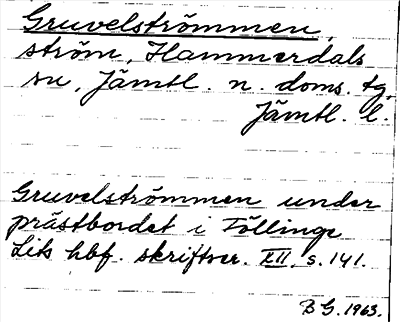 Gruvelströmmen,
ström, Hammerdals
sn, Jämtl. n. doms. tg,
Jämtl. l.
Gruvelströmmen under
prästbordet i Föllinge
Lits hbf. skriftser. XII, s. 141.
B G. 1963.